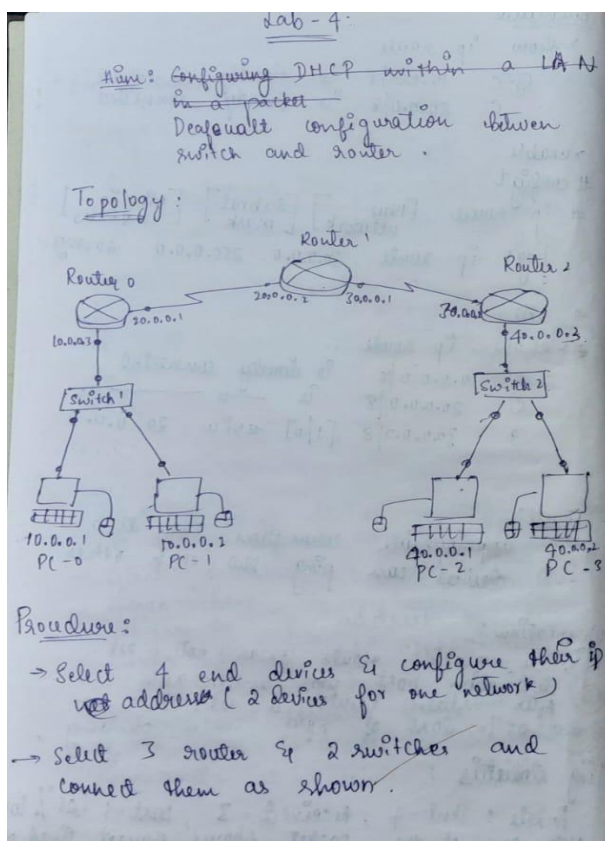 Lab - 4.
Aim: Configuring DHCP within a LAN
in a packet
Deafqualt configuration betwen
switch and router.
Topology:
Router 1
Router 0
Router 2
20.0.0.1
20.0.0.2
30.0.0.1
30.0.0.2
10.0.0.3
40.0.0.3
Switch 1
Switch 2
10.0.0.1
10.0.0.2
40.0.0.1
40.0.0.2
PC-0
PC-1
PC-2
PC-3
Procedure:
→ Select 4 end devices & configure their ip
address (2 devices for one network)
→ Select 3 router & 2 switches and
connect them as shown.